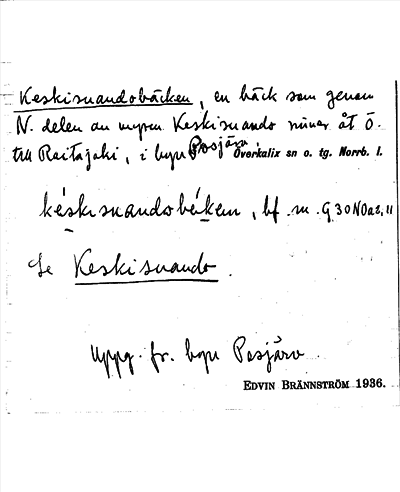 Keskisuandobäcken, en bäck som genom
N. delen av myren Keskisuando rinner åt Ö.
till Raitajoki, i byn Posjärv. Överkalix sn o. tg. Norrb. l.
késkisuandobékken, bf. m. G 30 NO a2, 11
Se Keskisuando.
Uppg. fr. byn Posjärv
EDVIN BRÄNNSTRÖM 1936.